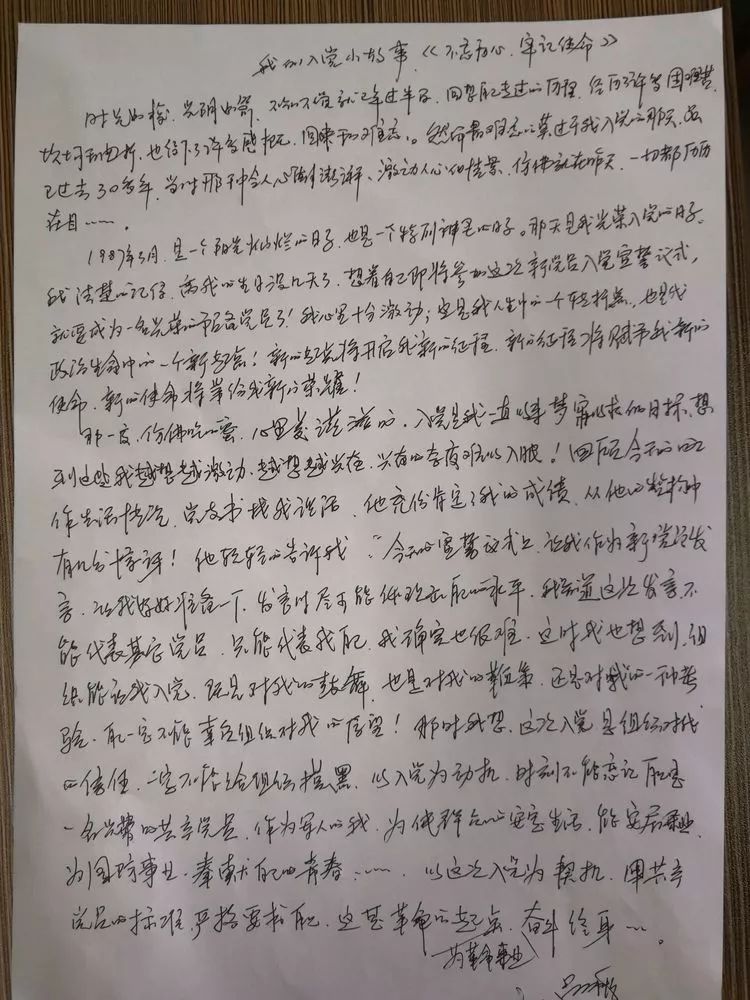 我的入党小故事《不忘初心、牢记使命》
时光如梭，光阴如箭，不知不觉就已年过半百，回想自己走过的历程，经历了许多困难
坎坷和曲折，也留下了许多感慨，回味和难忘。然而最难忘的莫过于我入党的那天，虽
已过去30多年，当时那种令人心潮澎湃、激动人心的情景，仿佛就在昨天，一切都历历
在目……。
1987年5月，是一个阳光灿烂的日子，也是一个特别神圣的日子。那天是我光荣入党的日子，
我清楚的记得，离我的生日没几天了，想着自己即将参加这次新党员入党宣誓仪式，
就要成为一名光荣的预备党员了！我心里十分激动；这是我人生中的一个转折点，也是我
政治生命中的一个新起点！新的起点将开启我新的征程，新的征程将赋予我新的
使命，新的使命将带给我新的荣耀！
那一夜，仿佛吃了蜜，心里美滋滋的，入党是我一直以来梦寐以求的目标，想
到这些我越想越激动，越想越兴奋，兴奋的李夜难以入眠！回顾今天的工
作生活情况，党支书找我谈话，他充份肯定了我的成绩，从他的
有几分惊讶！他轻轻的告诉我：今天的宣誓仪式上，让我作为新党员发
言，让我好好准备一下，发言时尽可能体现出自己的水平，我知道这次发言不
能代表其它党员，只能代表我自己，我确实也很难，这时我也想到，组
织能让我入党，既是对我的鼓舞，也是对我的鞭策，还是对我的一种考
验，自己一定不能辜负组织对我的厚望！那时我想，这次入党是组织对我
的信任，一定不能给组织抹黑，以入党为动机，时刻不能忘记自己是
一名光荣的共产党员，作为军人的我，为人民群众的安定生活，能安居乐业，
为国防事业，奉献自己的青春……，以这次入党为契机，用共产
党员的标准，严格要求自己，这是革命的起点，奋斗终身…。
为革命事业